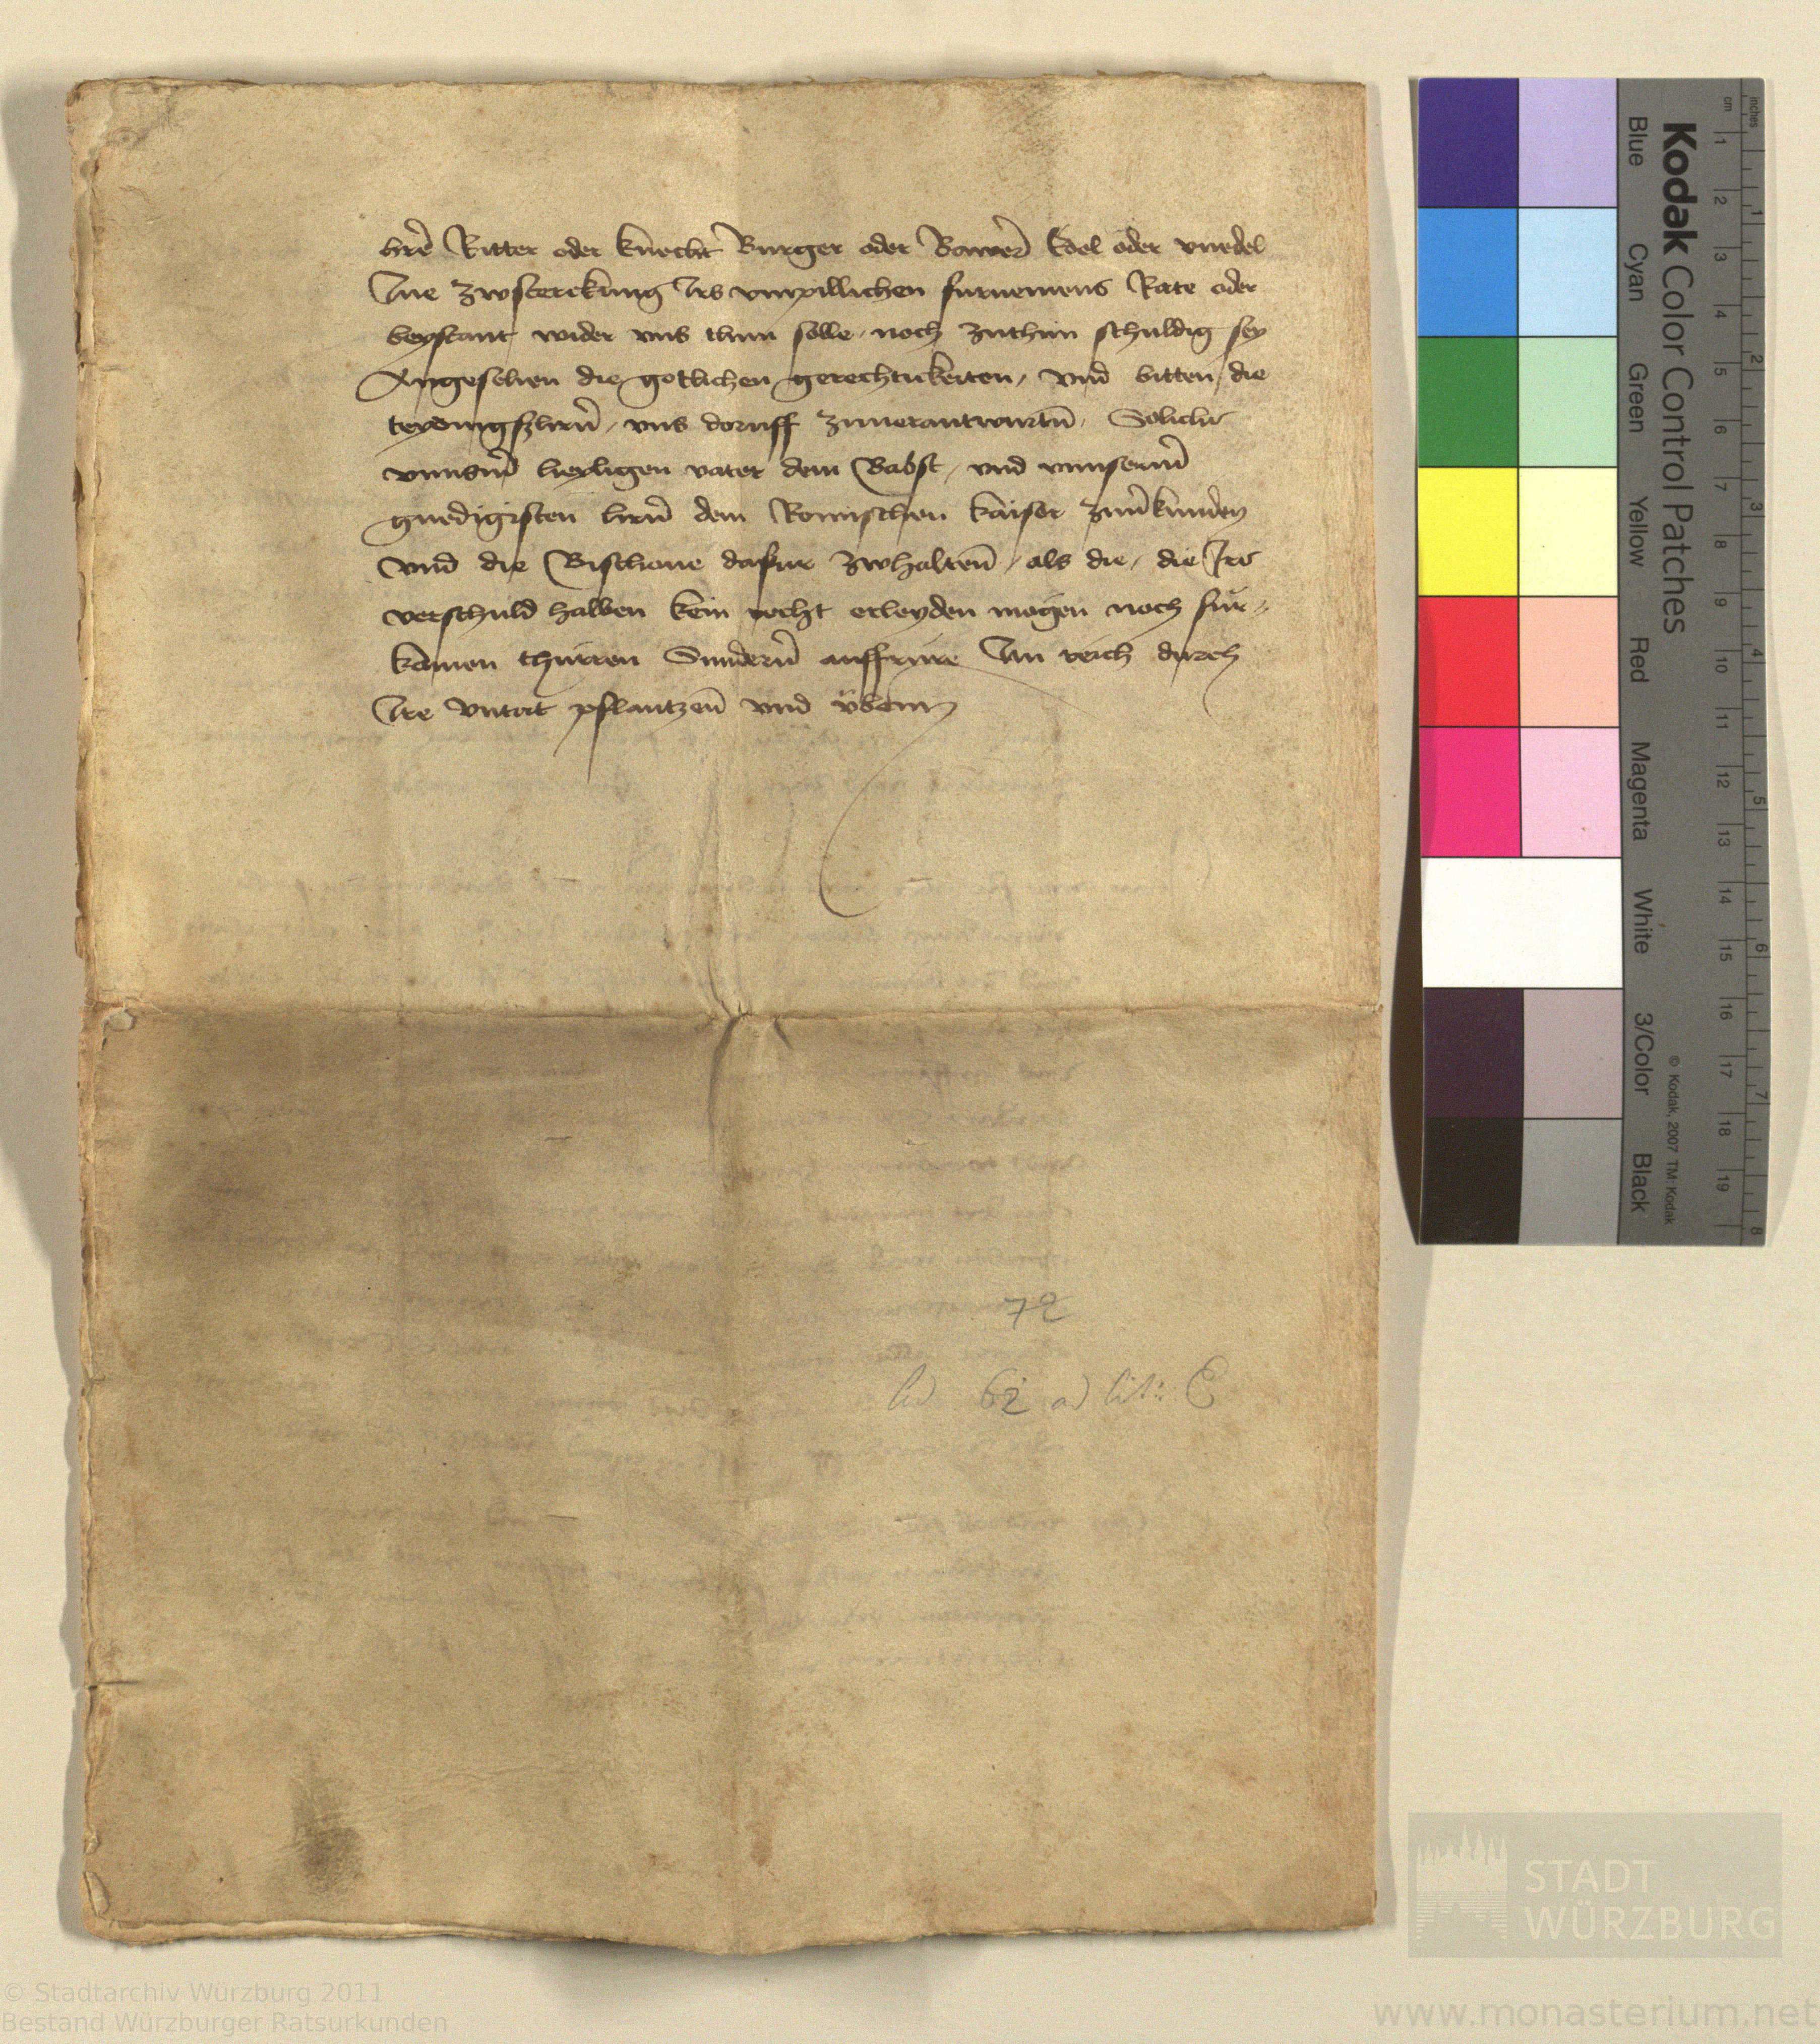 hre Ritter oder knecht Burger oder Bawer Edel oder vnedel
Ine zwsterckung Irs vnpillichen furnemens Rate oder
beystant wider vns thun solle, noch zuthun schuldig sey
Angesehen die gotlichen gerechtickeiten, vnd bitten die
teydingßhern, vns doruff zuuerantwurtn, Solichs
vnnserm heyligen vater dem Babst, vnd vnnserm
gnedigisten hern dem Romischen kaiser zuuerkunden
vnd die Bischoue dafur zwhalten, als die, die Irs
verschuld halben kein recht erleyden mögen noch fur=
komen thürren Sundern auffrure Im reich durch
Ire vntat pflantzen vnd übenn
72
62 ad lit: E
Kodak Color Control Patches
Blue Cyan Green Yellow Red Magenta White 3/Color Black
© Kodak, 2007 TM: Kodak
cm 1 2 3 4 5 6 7 8 9 10 11 12 13 14 15 16 17 18 19
inches 1 2 3 4 5 6 7 8
STADT
WÜRZBURG
© Stadtarchiv Würzburg 2011
Bestand Würzburger Ratsurkunden
www.monasterium.net